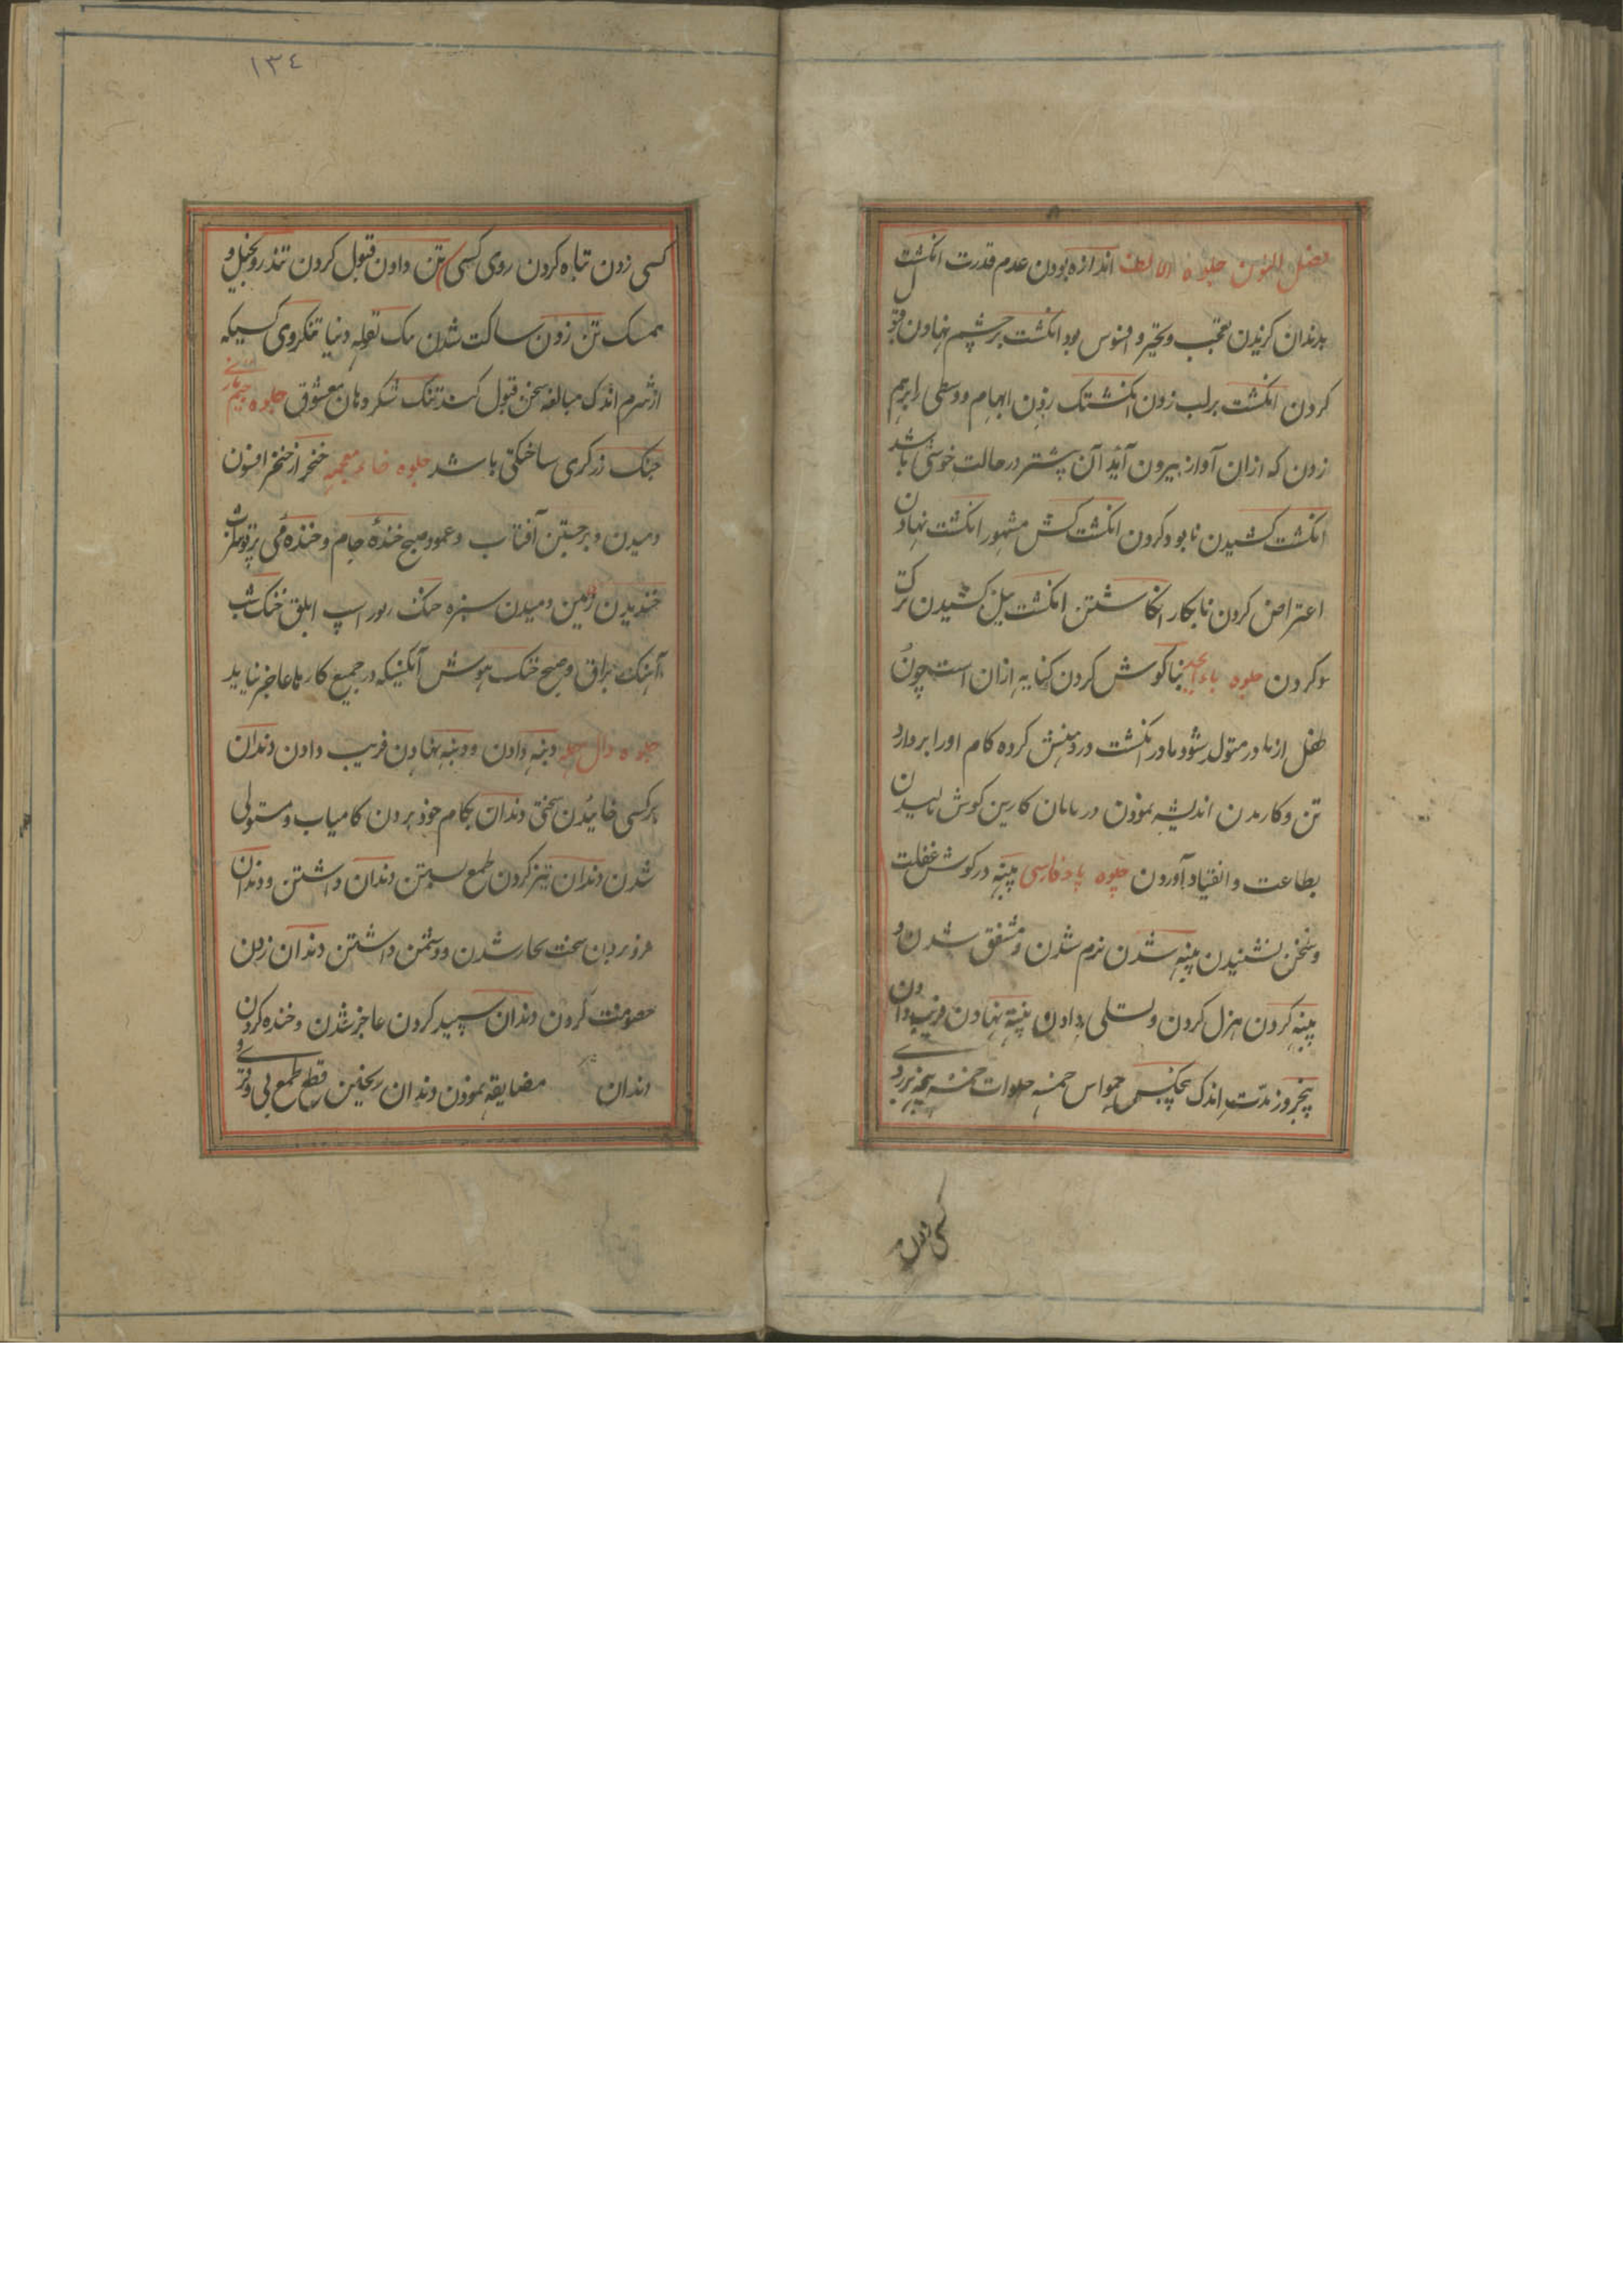 فصل النون جلوه الالف اندازه بودن عدم قدرت انکشت
بدندان کزیدن تعجب و تحیر و افسوس بود انکشت بر چشم نهادن قبول
کردن انکشت بر لب زدن انکشتک زدن ابهام و وسطی را برهم
زدن که ازان آواز بیرون آید آن پیشتر در حالت خوشی باشد
انکشت کشیدن نابود کردن انکشت کش مشهور انکشت نهادن
اعتراض کردن نابکار انکاشتن انکشت نیل کشیدن ترک
کردن جلوه باء ابجد بناکوش کردن کنایه ازان است چون
طفل از مادر متولد شود مادر انکشت در دهنش کرده کام او را بردارد
تن و کار اندیشه نمودن کوش مالیدن
بطاعت و انقیاد آوردن جلوه باء فارسی پنبه در کوش غفلت
و سخن نشنیدن پنبه شدن نرم شدن و متفق شدن و
پنبه کردن هزل کردن و تسلی دادن و پنبه نهادن فریب دادن
پنجروز مدت اندک حواس خمسه
کسی زدن
١٣٤
کسی زدن تباه کردن روی کسی تن دادن قبول کردن تندرو بخیل و
ممسک تن زدن ساکت شدن دنیا تنکروی کسیکه
از شرم اندک مبالغه سخن قبول کند تنک شکر دهان معشوق جلوه جیم تازی
جنک زرکری ساختکی باشد جلوه خاء معجمه خنجر از خنجر افسون
دمیدن و برجستن آفتاب و عمود صبح خندهٔ جام و خنده می پرتو
خندیدن زمین دمیدن سبزه خنک اسپ ابلق خنک شب
آهنک براق و صبح خنک هوش آنکسیکه در جمیع کارها عاجز نیاید
جلوه دال مهمله دنبه دادن و دنبه نهادن فریب دادن دندان
بر کسی خائیدن سختی دندان بکام خود بردن کامیاب و مستولی
شدن دندان تیز کردن طمع بستن دندان داشتن و دندان
فرو بردن سخت بکار شدن و دشمن داشتن دندان زدن
خصومت کردن دندان سپید کردن عاجز شدن و خنده کردن
دندان مضایقه نمودن دندان ریختن قطع طمع بی